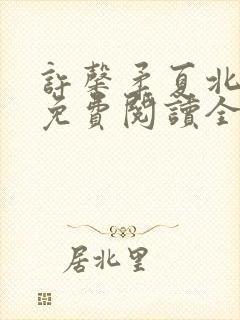 許馨矛夏北
免費閱讀全
居北里